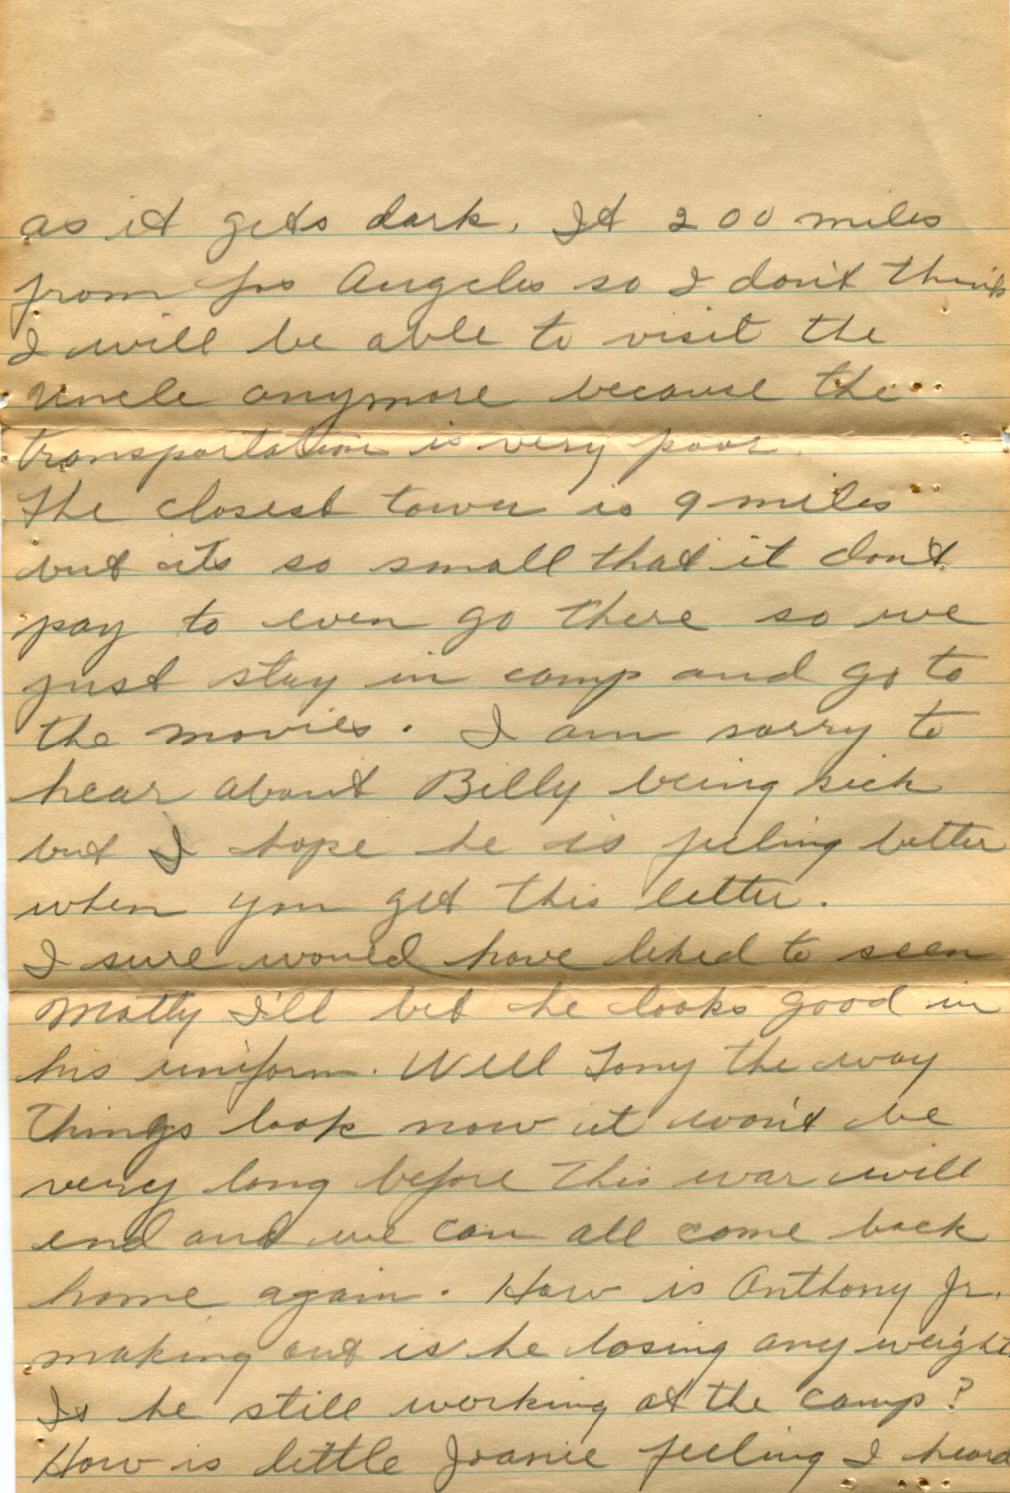 as it gets dark. It 200 miles
from Los Angeles so I don't think
I will be able to visit the
Uncle anymore because the
transportation is very poor.
The closest town is 9 miles
but its so small that it don't
pay to even go there so we
just stay in camp and go to
the movies. I am sorry to
hear about Billy being sick
but I hope he is feeling better
when you get this letter.
I sure would have liked to seen
Matty I'll bet he looks good in
his uniform. Well Tony the way
things look now it won't be
very long before this war will
end and we can all come back
home again. How is Anthony Jr.
making out is he losing any weight
Is he still working at the camp?
How is little Joanie feeling I heard